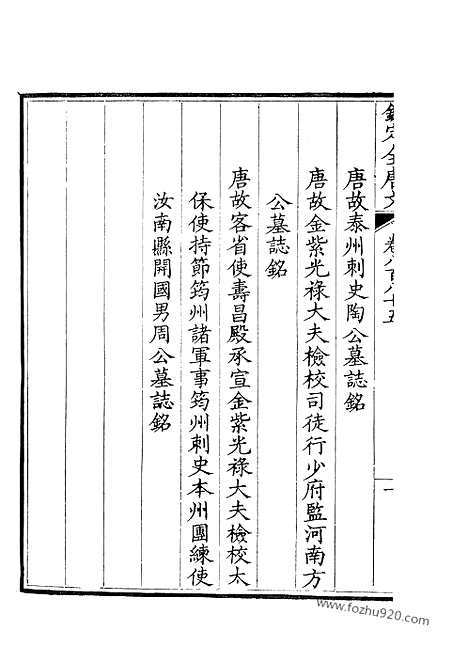 欽定全唐文 卷八百八十五 一
唐故泰州刺史陶公墓誌銘
唐故金紫光祿大夫檢校司徒行少府監河南方
公墓誌銘
唐故客省使壽昌殿承宣金紫光祿大夫檢校太
保使持節筠州諸軍事筠州刺史本州團練使
汝南縣開國男周公墓誌銘
www.fozhu920.com